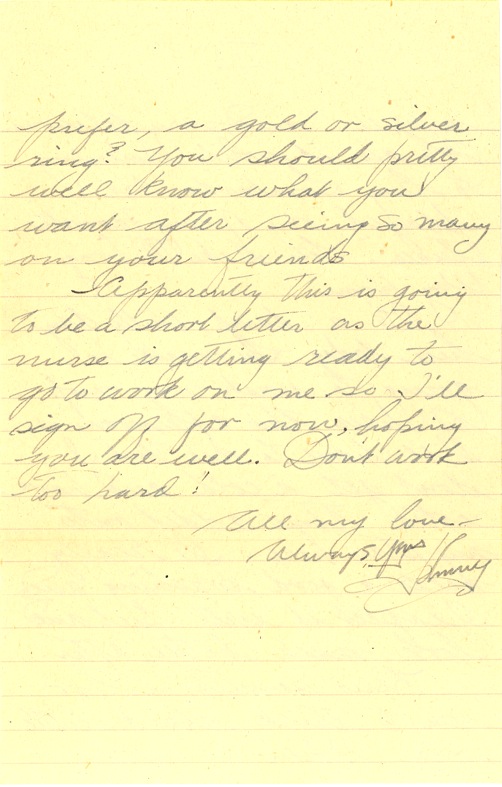 prefer, a gold or silver
ring? You should pretty
well know what you
want after seeing so many
on your friends
Apparently this is going
to be a short letter as the
nurse is getting ready to
go to work on me so I'll
sign off for now, hoping
you are well. Don't work
too hard!
All my love -
Always, Yours